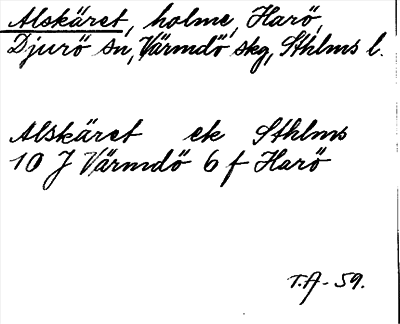 Alskäret, holme, Harö,
Djurö sn, Värmdö skg, Sthlms l.
Alskäret ek Sthlms
10 J Värmdö 6 f Harö
T.A - 59.